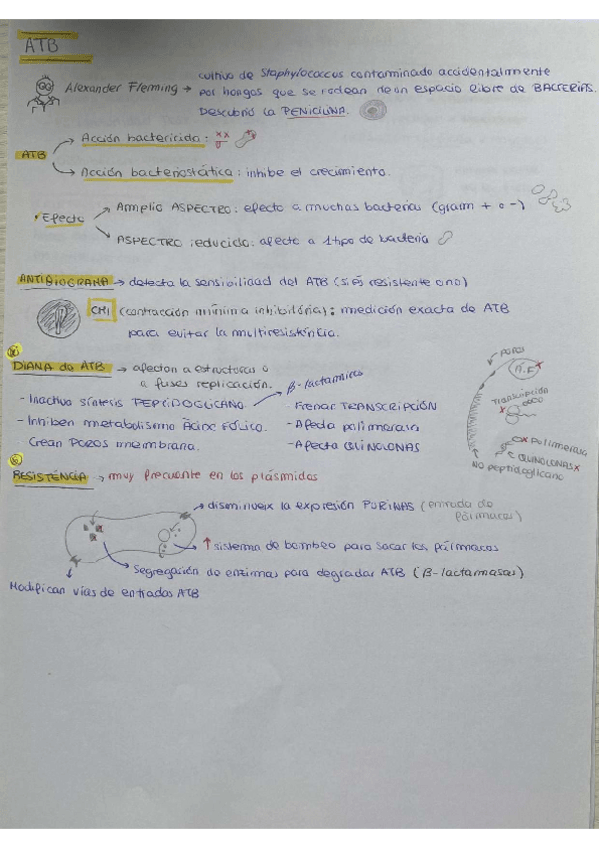 ATB
Alexander Fleming → cultivo de Staphylococcus contaminado accidentalmente
por hongos que se rodean de un espacio libre de BACTERIAS.
Descubrió la PENICILINA.
ATB
Acción bactericida:
Acción bacteriostática: inhibe el crecimiento.
Efecto
Amplio ASPECTRO: efecto a muchas bacterias (gram + o -)
ASPECTRO reducido: afecta a 1 tipo de bacteria
ANTIBIOGRAMA → detecta la sensibilidad del ATB (si es resistente o no)
CMI (contracción mínima inhibitória): medición exacta de ATB
para evitar la multiresistència.
DIANA de ATB → afectan a estructuras o
a fases replicación.
β-lactámico
- Inactiva síntesis PEPTIDOGLICANO
- Inhiben metabolismo Ácido FÓLICO.
- Crean POROS membrana.
- Frenar TRANSCRIPCIÓN
- Afecta polimerasa
- Afecta QUINOLONAS
POROS
A.F X
Transcripción
X
X polimerasa
QUINOLONAS X
NO peptidoglicano
RESISTÈNCIA → muy frecuente en los plásmidos
disminueix la expresión PORINAS (entrada de
fármacos)
↑ sistema de bombeo para sacar los fármacos
Segregación de enzimas para degradar ATB (β-lactamasas)
Modifican vías de entradas ATB